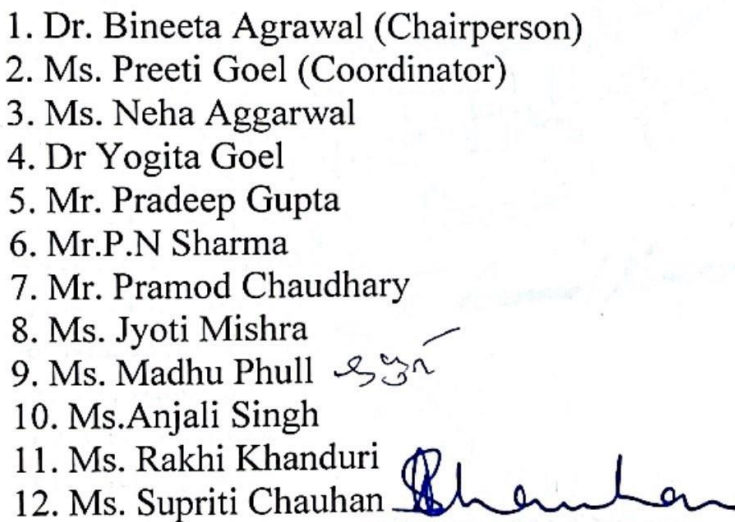 1. Dr. Bineeta Agrawal (Chairperson)
2. Ms. Preeti Goel (Coordinator)
3. Ms. Neha Aggarwal
4. Dr Yogita Goel
5. Mr. Pradeep Gupta
6. Mr.P.N Sharma
7. Mr. Pramod Chaudhary
8. Ms. Jyoti Mishra
9. Ms. Madhu Phull
10. Ms.Anjali Singh
11. Ms. Rakhi Khanduri
12. Ms. Supriti Chauhan